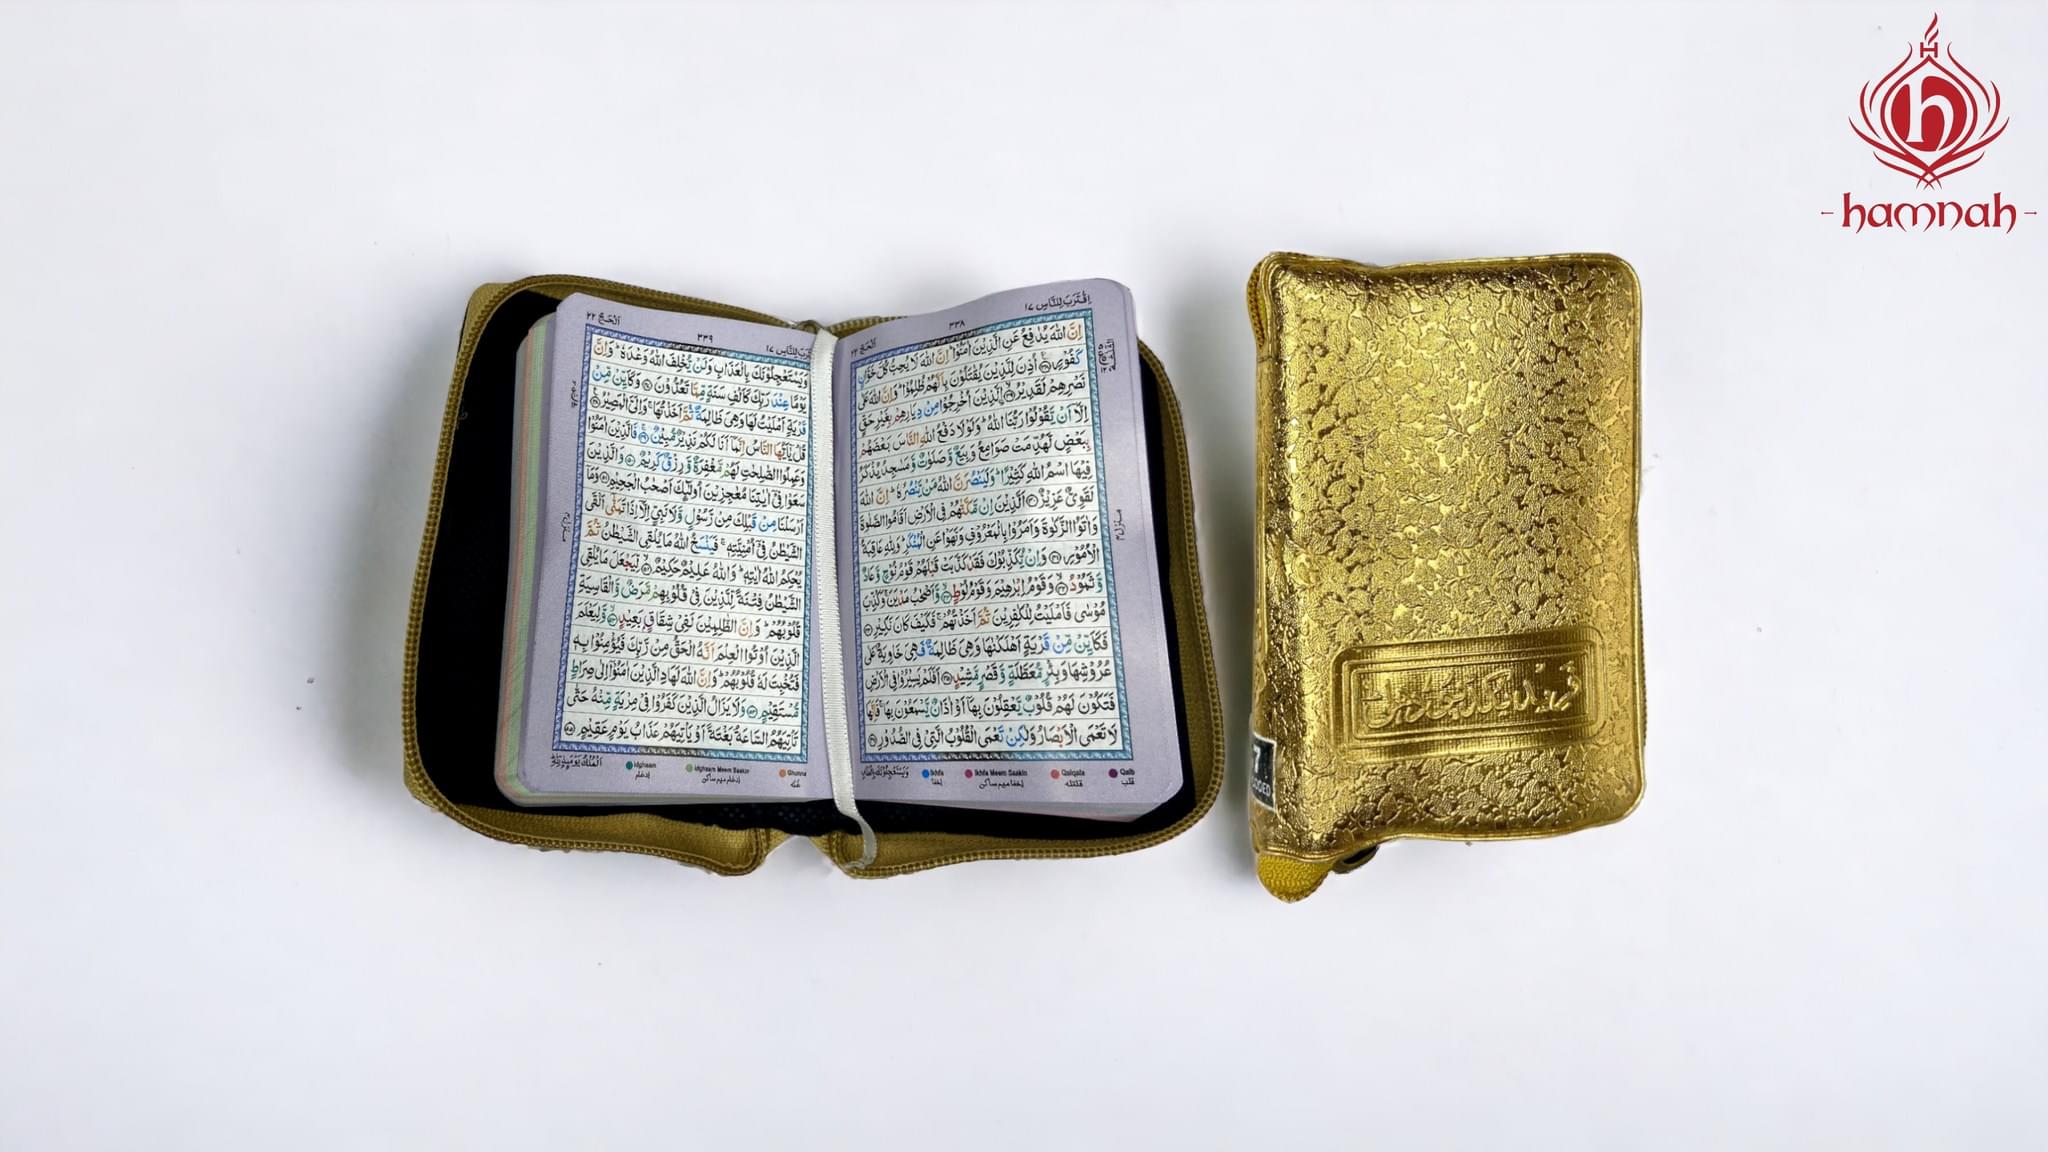 اِقْتَرَبَ لِلنَّاسِ ١٧
٣٣٨
اَلْحَجّ ٢٢
اِنَّ اللّٰهَ يُدٰفِعُ عَنِ الَّذِيْنَ اٰمَنُوْا ؕ اِنَّ اللّٰهَ لَا يُحِبُّ كُلَّ خَوَّانٍ
كَفُوْرٍ ﴿٣٨﴾ اُذِنَ لِلَّذِيْنَ يُقٰتَلُوْنَ بِاَنَّهُمْ ظُلِمُوْا ؕ وَاِنَّ اللّٰهَ عَلٰى
نَصْرِهِمْ لَقَدِيْرُ ﴿٣٩﴾ الَّذِيْنَ اُخْرِجُوْا مِنْ دِيَارِهِمْ بِغَيْرِ حَقٍّ
اِلَّاۤ اَنْ يَّقُوْلُوْا رَبُّنَا اللّٰهُ ؕ وَلَوْلَا دَفْعُ اللّٰهِ النَّاسَ بَعْضَهُمْ
بِبَعْضٍ لَّهُدِّمَتْ صَوَامِعُ وَبِيَعٌ وَّصَلَوٰتٌ وَّمَسٰجِدُ يُذْكَرُ
فِيْهَا اسْمُ اللّٰهِ كَثِيْرًا ؕ وَلَيَنْصُرَنَّ اللّٰهُ مَنْ يَّنْصُرُهٗ ؕ اِنَّ اللّٰهَ
لَقَوِيٌّ عَزِيْزٌ ﴿٤٠﴾ اَلَّذِيْنَ اِنْ مَّكَّنّٰهُمْ فِى الْاَرْضِ اَقَامُوا الصَّلٰوةَ
وَاٰتَوُا الزَّكٰوةَ وَاَمَرُوْا بِالْمَعْرُوْفِ وَنَهَوْا عَنِ الْمُنْكَرِ ؕ وَلِلّٰهِ عَاقِبَةُ
الْاُمُوْرِ ﴿٤١﴾ وَاِنْ يُّكَذِّبُوْكَ فَقَدْ كَذَّبَتْ قَبْلَهُمْ قَوْمُ نُوْحٍ وَّعَادٌ
وَّثَمُوْدُ ﴿٤٢﴾ وَقَوْمُ اِبْرٰهِيْمَ وَقَوْمُ لُوْطٍ ﴿٤٣﴾ وَّاَصْحٰبُ مَدْيَنَ ۚ وَكُذِّبَ
مُوْسٰى فَاَمْلَيْتُ لِلْكٰفِرِيْنَ ثُمَّ اَخَذْتُهُمْ ۚ فَكَيْفَ كَانَ نَكِيْرِ ﴿٤٤﴾
فَكَاَيِّنْ مِّنْ قَرْيَةٍ اَهْلَكْنٰهَا وَهِىَ ظَالِمَةٌ فَهِىَ خَاوِيَةٌ عَلٰى
عُرُوْشِهَا وَبِئْرٍ مُّعَطَّلَةٍ وَّقَصْرٍ مَّشِيْدٍ ﴿٤٥﴾ اَفَلَمْ يَسِيْرُوْا فِى الْاَرْضِ
فَتَكُوْنَ لَهُمْ قُلُوْبٌ يَّعْقِلُوْنَ بِهَاۤ اَوْ اٰذَانٌ يَّسْمَعُوْنَ بِهَا ۚ فَاِنَّهَا
لَا تَعْمَى الْاَبْصَارُ وَلٰكِنْ تَعْمَى الْقُلُوْبُ الَّتِىْ فِى الصُّدُوْرِ ﴿٤٦﴾
Qalb قلب
Qalqala قلقله
Ikhfa Meem Saakin اخفا ميم ساكن
Ikhfa اخفا
وَيَسْتَعْجِلُوْنَكَ بِالْعَذَابِ
رَبَ لِلنَّاسِ ١٧
٣٣٩
اَلْحَجّ ٢٢
وَيَسْتَعْجِلُوْنَكَ بِالْعَذَابِ وَلَنْ يُّخْلِفَ اللّٰهُ وَعْدَهٗ ؕ وَاِنَّ
يَوْمًا عِنْدَ رَبِّكَ كَاَلْفِ سَنَةٍ مِّمَّا تَعُدُّوْنَ ﴿٤٧﴾ وَكَاَيِّنْ مِّنْ
قَرْيَةٍ اَمْلَيْتُ لَهَا وَهِىَ ظَالِمَةٌ ثُمَّ اَخَذْتُهَا ۚ وَاِلَىَّ الْمَصِيْرُ ﴿٤٨﴾
قُلْ يٰۤاَيُّهَا النَّاسُ اِنَّمَاۤ اَنَا لَكُمْ نَذِيْرٌ مُّبِيْنٌ ﴿٤٩﴾ فَالَّذِيْنَ اٰمَنُوْا
وَعَمِلُوا الصّٰلِحٰتِ لَهُمْ مَّغْفِرَةٌ وَّرِزْقٌ كَرِيْمٌ ﴿٥٠﴾ وَالَّذِيْنَ
سَعَوْا فِىْۤ اٰيٰتِنَا مُعٰجِزِيْنَ اُولٰٓئِكَ اَصْحٰبُ الْجَحِيْمِ ﴿٥١﴾ وَمَاۤ
اَرْسَلْنَا مِنْ قَبْلِكَ مِنْ رَّسُوْلٍ وَّلَا نَبِىٍّ اِلَّاۤ اِذَا تَمَنّٰۤى اَلْقَى
الشَّيْطٰنُ فِىْۤ اُمْنِيَّتِهٖ ۚ فَيَنْسَخُ اللّٰهُ مَا يُلْقِى الشَّيْطٰنُ ثُمَّ
يُحْكِمُ اللّٰهُ اٰيٰتِهٖ ؕ وَاللّٰهُ عَلِيْمٌ حَكِيْمٌ ﴿٥٢﴾ لِّيَجْعَلَ مَا يُلْقِى
الشَّيْطٰنُ فِتْنَةً لِّلَّذِيْنَ فِىْ قُلُوْبِهِمْ مَّرَضٌ وَّالْقَاسِيَةِ
قُلُوْبُهُمْ ؕ وَاِنَّ الظّٰلِمِيْنَ لَفِىْ شِقَاقٍۭ بَعِيْدٍ ﴿٥٣﴾ وَّلِيَعْلَمَ
الَّذِيْنَ اُوْتُوا الْعِلْمَ اَنَّهُ الْحَقُّ مِنْ رَّبِّكَ فَيُؤْمِنُوْا بِهٖ
فَتُخْبِتَ لَهٗ قُلُوْبُهُمْ ؕ وَاِنَّ اللّٰهَ لَهَادِ الَّذِيْنَ اٰمَنُوْۤا اِلٰى صِرَاطٍ
مُّسْتَقِيْمٍ ﴿٥٤﴾ وَلَا يَزَالُ الَّذِيْنَ كَفَرُوْا فِىْ مِرْيَةٍ مِّنْهُ حَتّٰى
تَاْتِيَهُمُ السَّاعَةُ بَغْتَةً اَوْ يَاْتِيَهُمْ عَذَابُ يَوْمٍ عَقِيْمٍ ﴿٥٥﴾
Ghunna غنه
Idghaam Meem Saakin ادغام ميم ساكن
Idghaam ادغام
اَلْمُلْكُ يَوْمَئِذٍ لِّلّٰهِ
hamnah